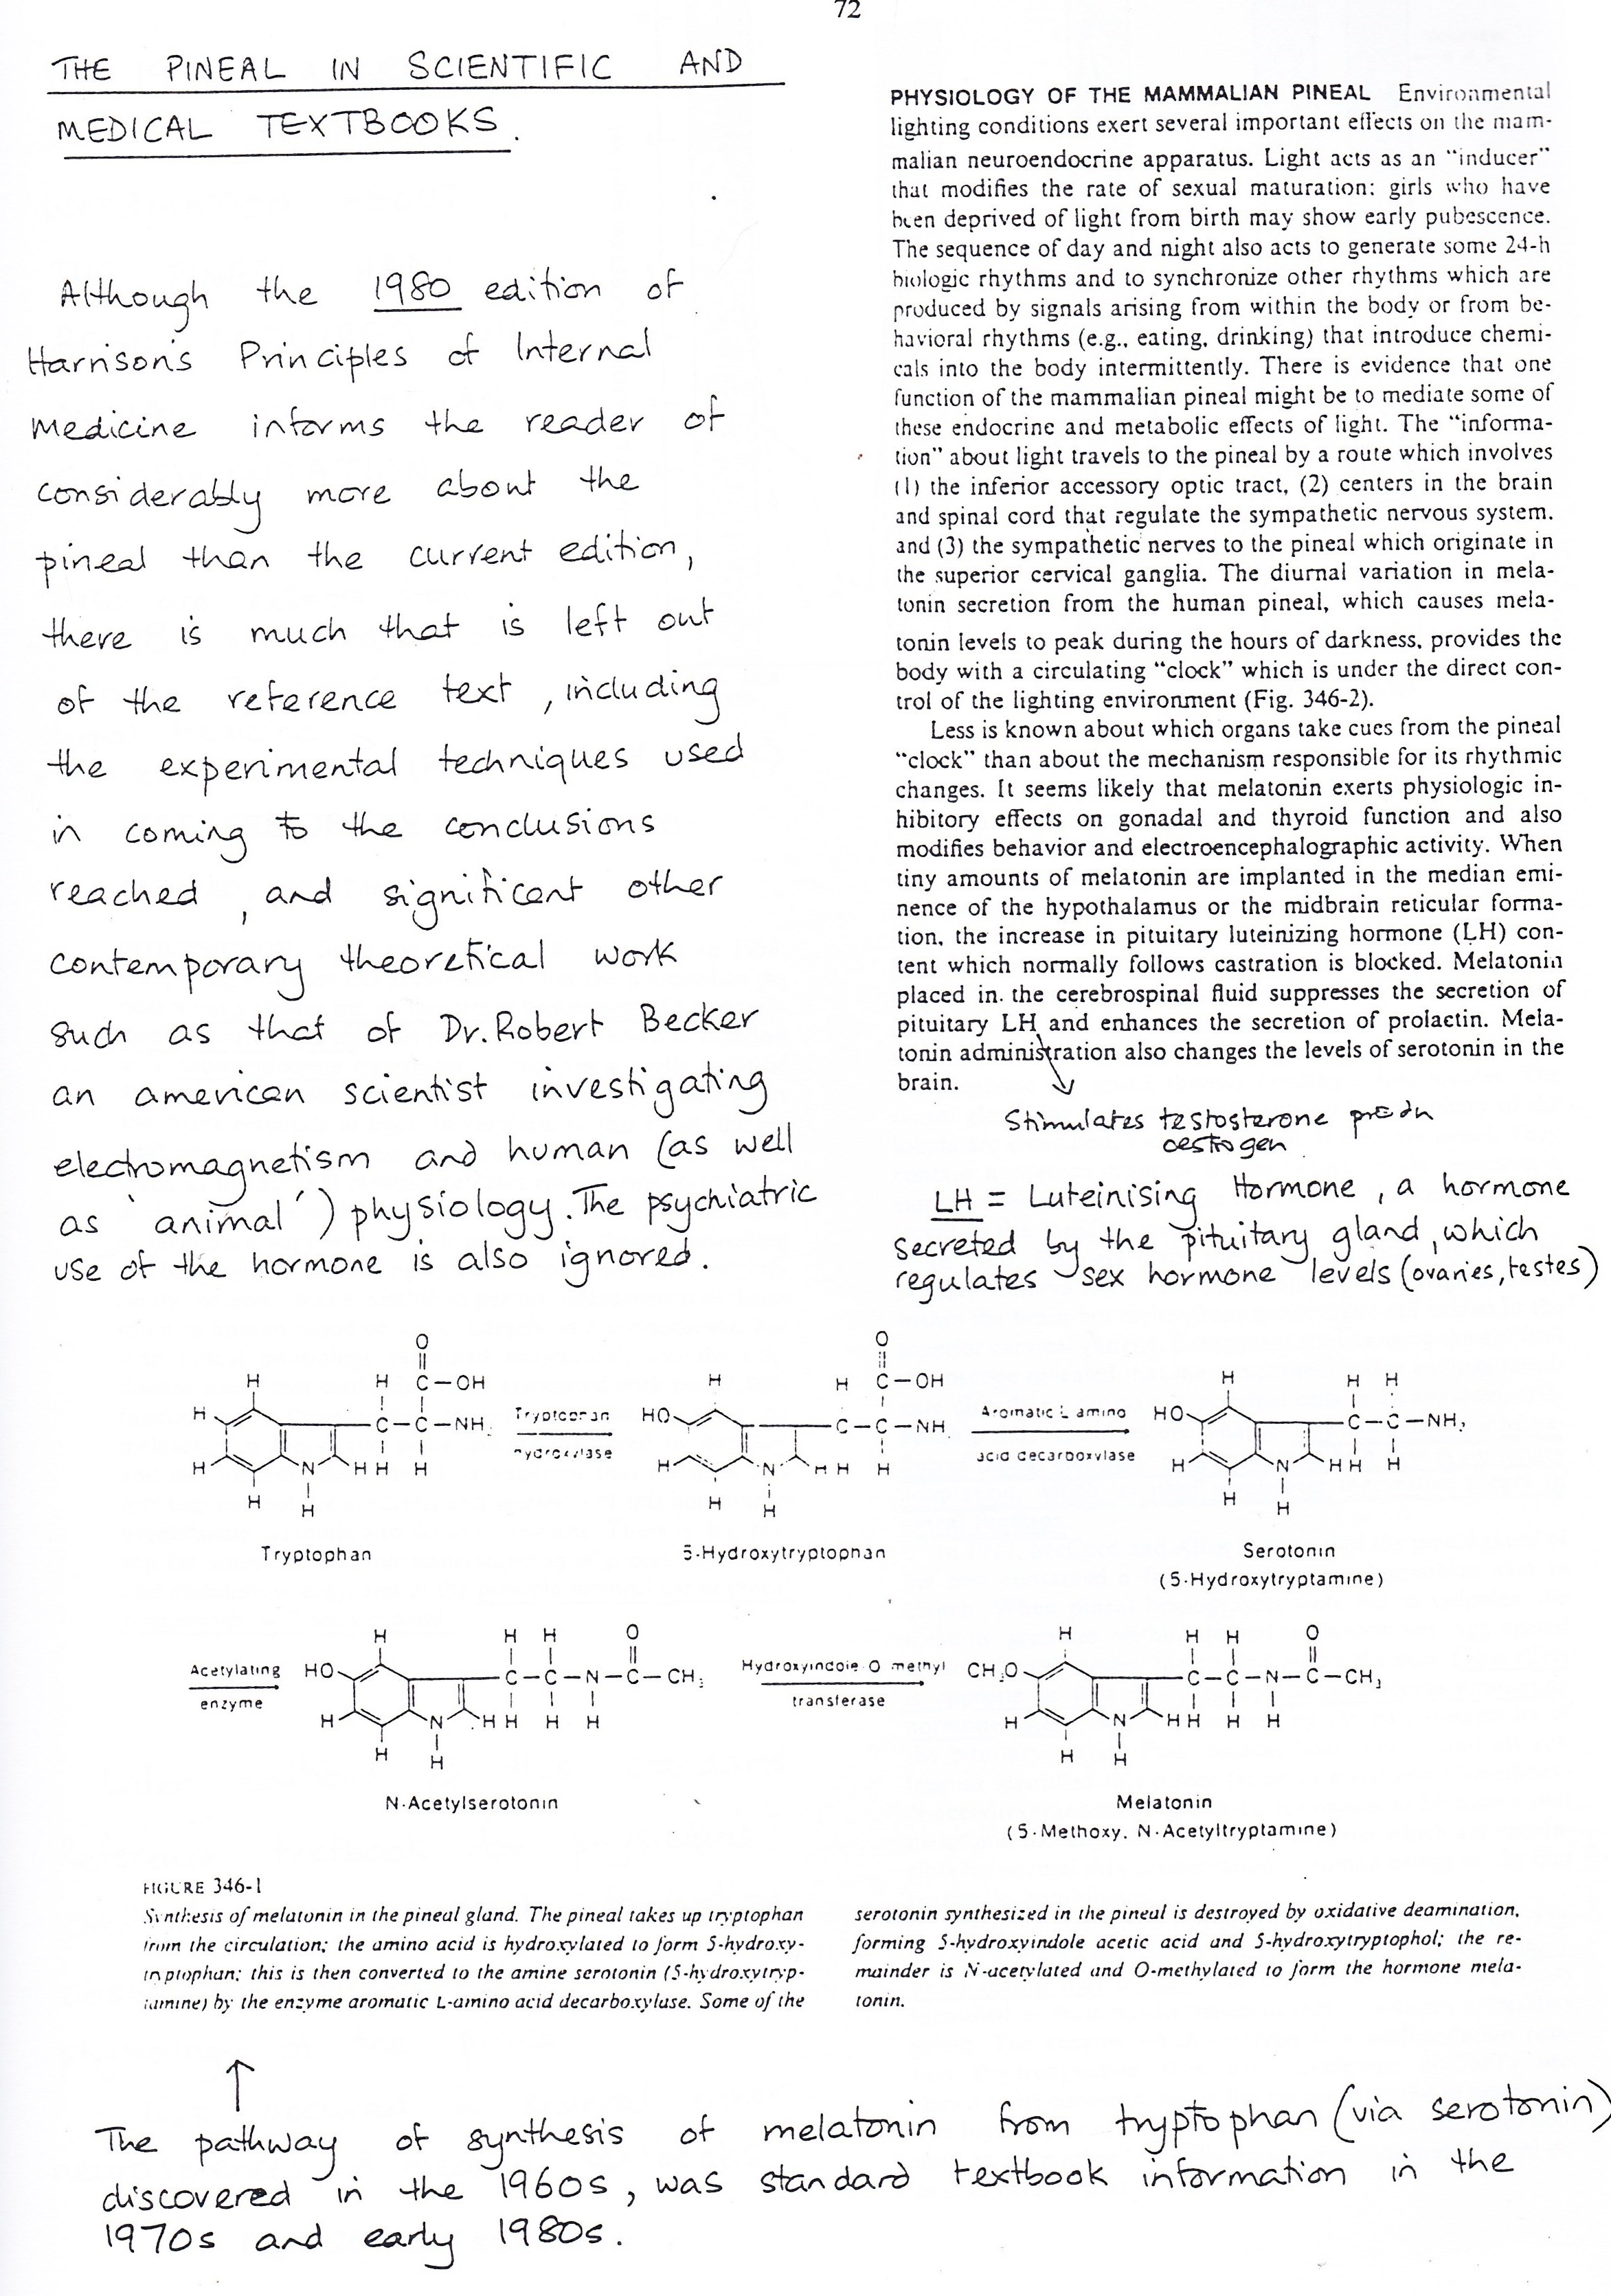 72
THE PINEAL IN SCIENTIFIC AND
MEDICAL TEXTBOOKS.
Although the 1980 edition of
Harrison's Principles of Internal
Medicine informs the reader of
considerably more about the
pineal than the current edition,
there is much that is left out
of the reference text, including
the experimental techniques used
in coming to the conclusions
reached, and significant other
contemporary theoretical work
such as that of Dr. Robert Becker
an american scientist investigating
electromagnetism and human (as well
as 'animal') physiology. The psychiatric
use of the hormone is also ignored.
PHYSIOLOGY OF THE MAMMALIAN PINEAL Environmental
lighting conditions exert several important effects on the mam-
malian neuroendocrine apparatus. Light acts as an "inducer"
that modifies the rate of sexual maturation: girls who have
been deprived of light from birth may show early pubescence.
The sequence of day and night also acts to generate some 24-h
biologic rhythms and to synchronize other rhythms which are
produced by signals arising from within the body or from be-
havioral rhythms (e.g., eating, drinking) that introduce chemi-
cals into the body intermittently. There is evidence that one
function of the mammalian pineal might be to mediate some of
these endocrine and metabolic effects of light. The "informa-
tion" about light travels to the pineal by a route which involves
(1) the inferior accessory optic tract, (2) centers in the brain
and spinal cord that regulate the sympathetic nervous system.
and (3) the sympathetic nerves to the pineal which originate in
the superior cervical ganglia. The diurnal variation in mela-
tonin secretion from the human pineal, which causes mela-
tonin levels to peak during the hours of darkness, provides the
body with a circulating "clock" which is under the direct con-
trol of the lighting environment (Fig. 346-2).
Less is known about which organs take cues from the pineal
"clock" than about the mechanism responsible for its rhythmic
changes. It seems likely that melatonin exerts physiologic in-
hibitory effects on gonadal and thyroid function and also
modifies behavior and electroencephalographic activity. When
tiny amounts of melatonin are implanted in the median emi-
nence of the hypothalamus or the midbrain reticular forma-
tion, the increase in pituitary luteinizing hormone (LH) con-
tent which normally follows castration is blocked. Melatonin
placed in. the cerebrospinal fluid suppresses the secretion of
pituitary LH and enhances the secretion of prolactin. Mela-
tonin administration also changes the levels of serotonin in the
brain.
Stimulates testosterone
oestrogen
LH = Luteinising Hormone, a hormone
secreted by the pituitary gland, which
regulates sex hormone levels (ovaries, testes)
O
H H C-OH
H C-C-NH2
H N H H H
H H
Tryptophan
Tryptophan
hydroxylase
O
H H C-OH
HO C-C-NH
H N H H H
H H
5-Hydroxytryptophan
Aromatic L amino
acid decarboxylase
H H H
HO C-C-NH2
H N H H H
H H
Serotonin
(5-Hydroxytryptamine)
Acetylating
enzyme
H H H O
HO C-C-N-C-CH3
H N H H H H
H H
N-Acetylserotonin
Hydroxyindole O methyl
transferase
H H H O
CH3O C-C-N-C-CH3
H N H H H H
H H
Melatonin
(5-Methoxy, N-Acetyltryptamine)
FIGURE 346-1
Synthesis of melatonin in the pineal gland. The pineal takes up tryptophan
from the circulation; the amino acid is hydroxylated to form 5-hydroxy-
tryptophan; this is then converted to the amine serotonin (5-hydroxytryp-
tamine) by the enzyme aromatic L-amino acid decarboxylase. Some of the
serotonin synthesized in the pineal is destroyed by oxidative deamination,
forming 5-hydroxyindole acetic acid and 5-hydroxytryptophol; the re-
mainder is N-acetylated and O-methylated to form the hormone mela-
tonin.
The pathway of synthesis of melatonin from tryptophan (via serotonin)
discovered in the 1960s, was standard textbook information in the
1970s and early 1980s.